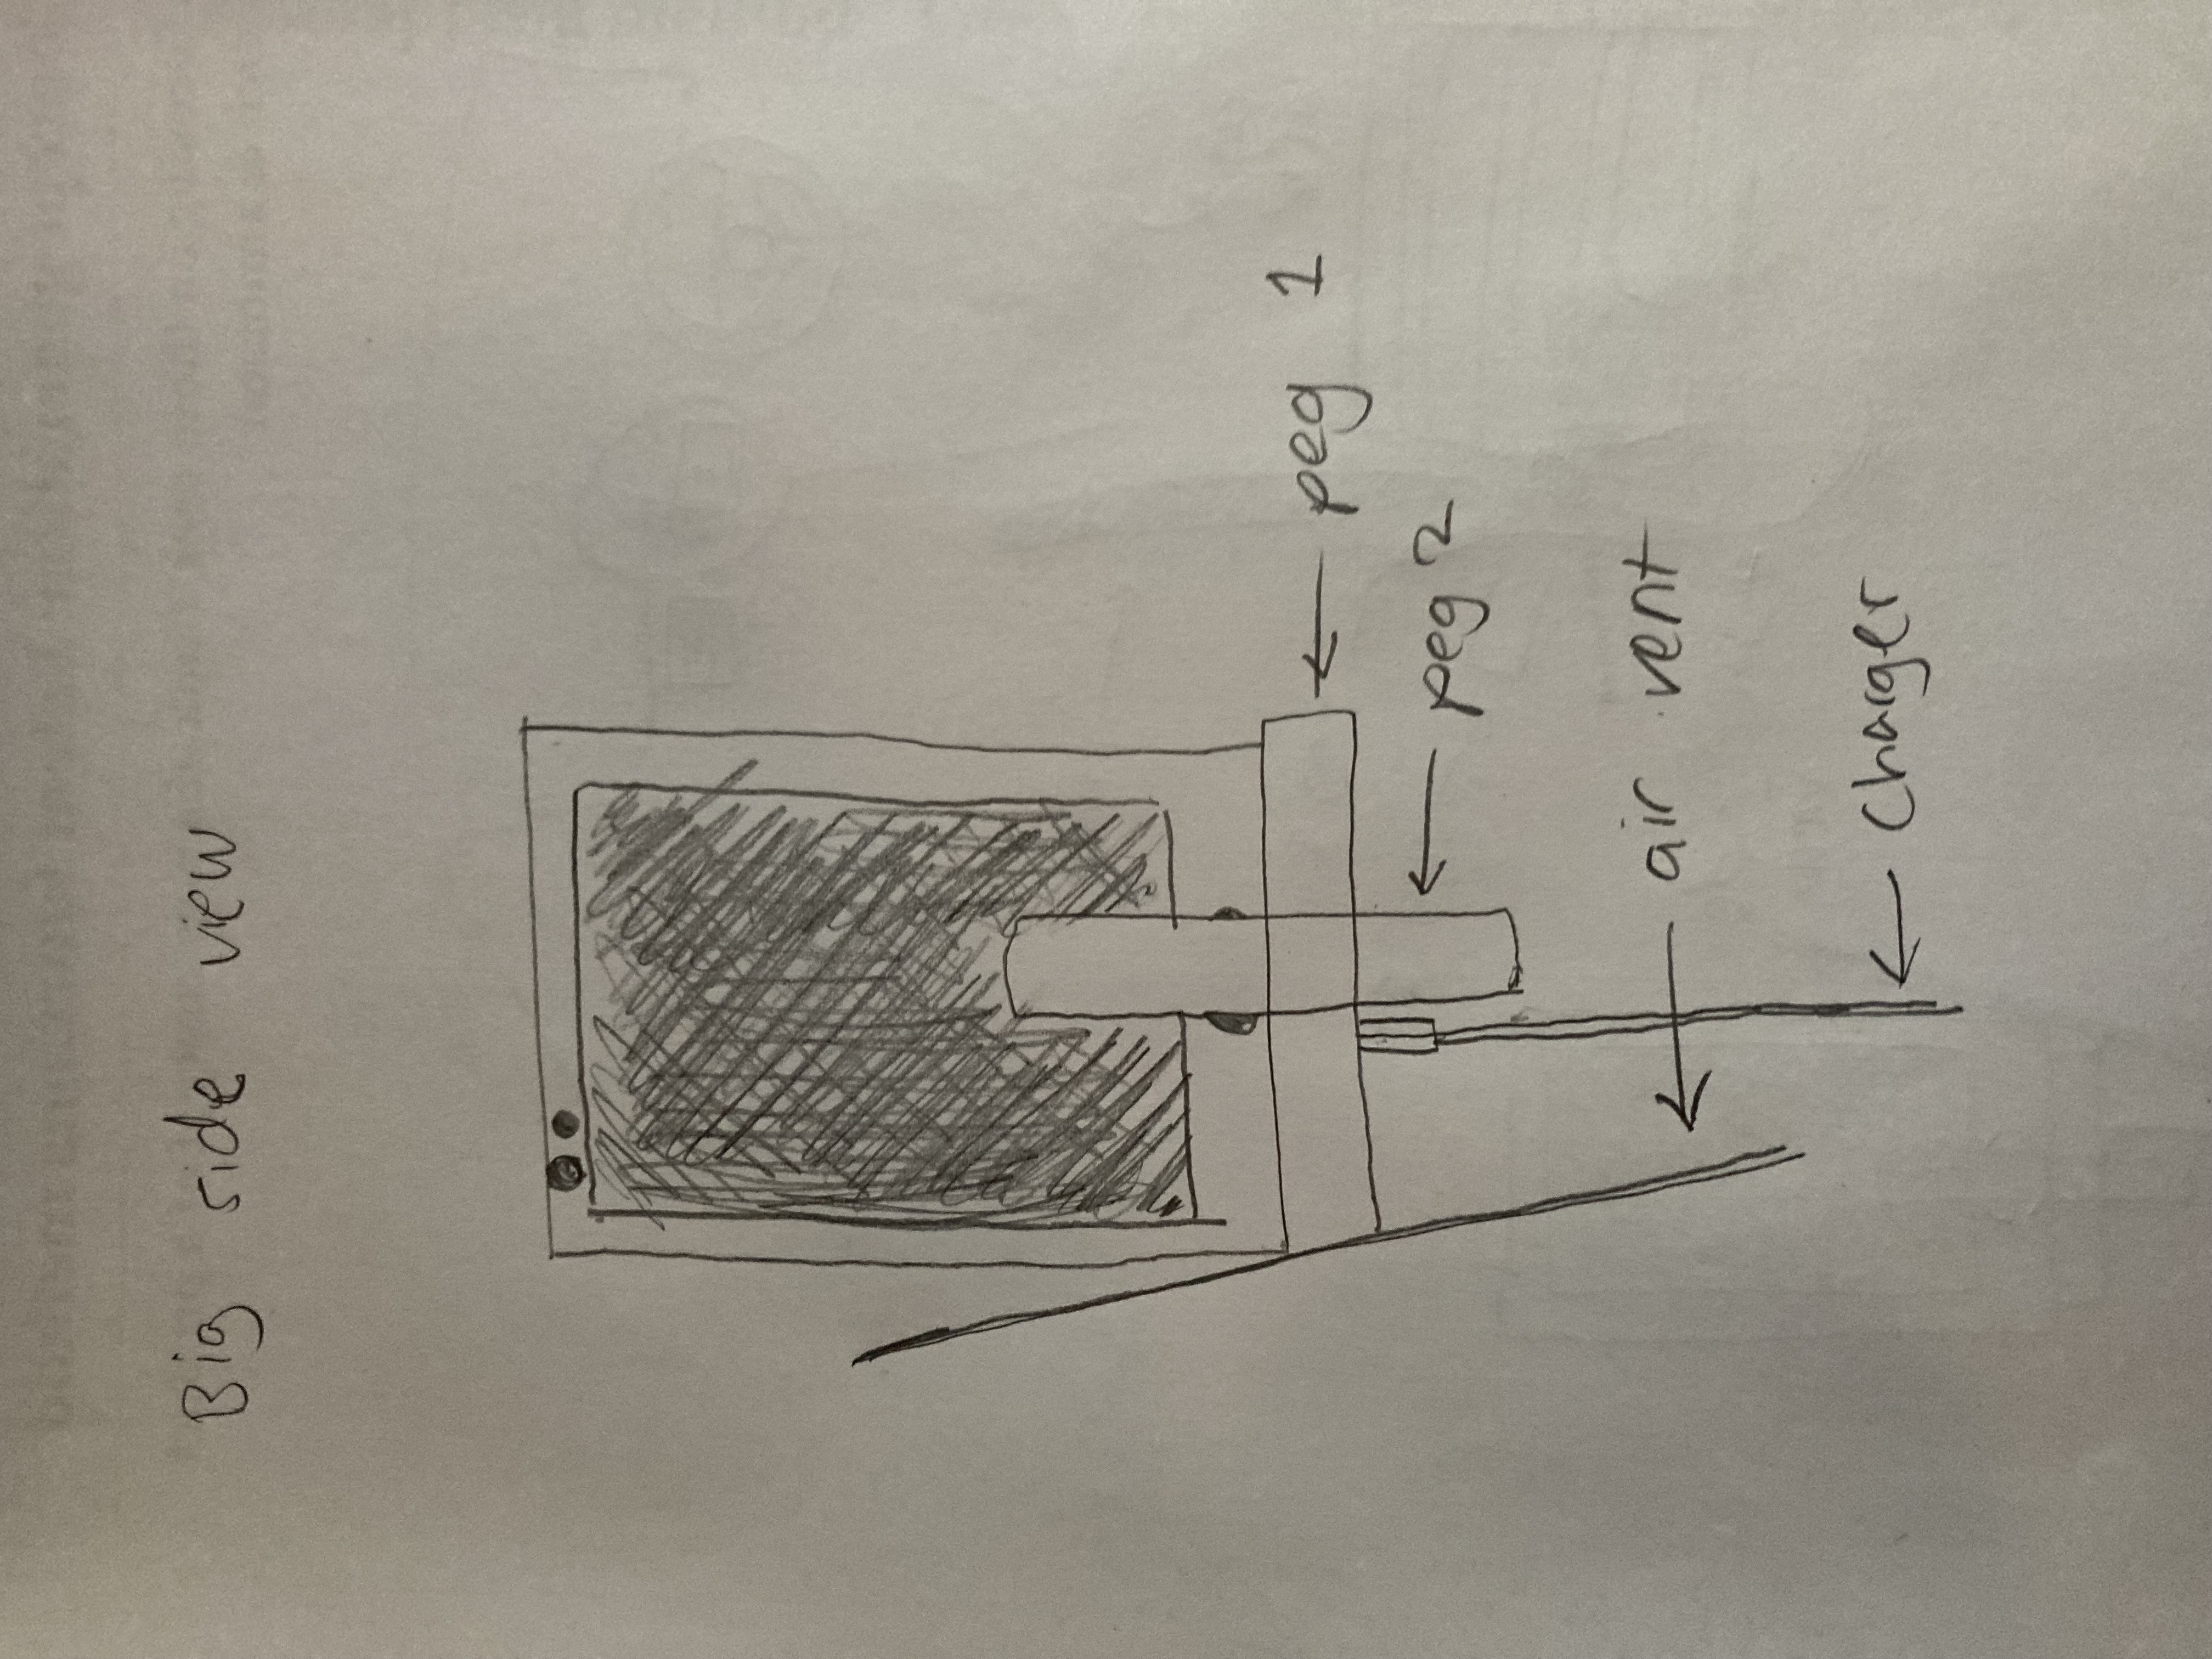 Big side view
peg 1
peg 2
air vent
charger